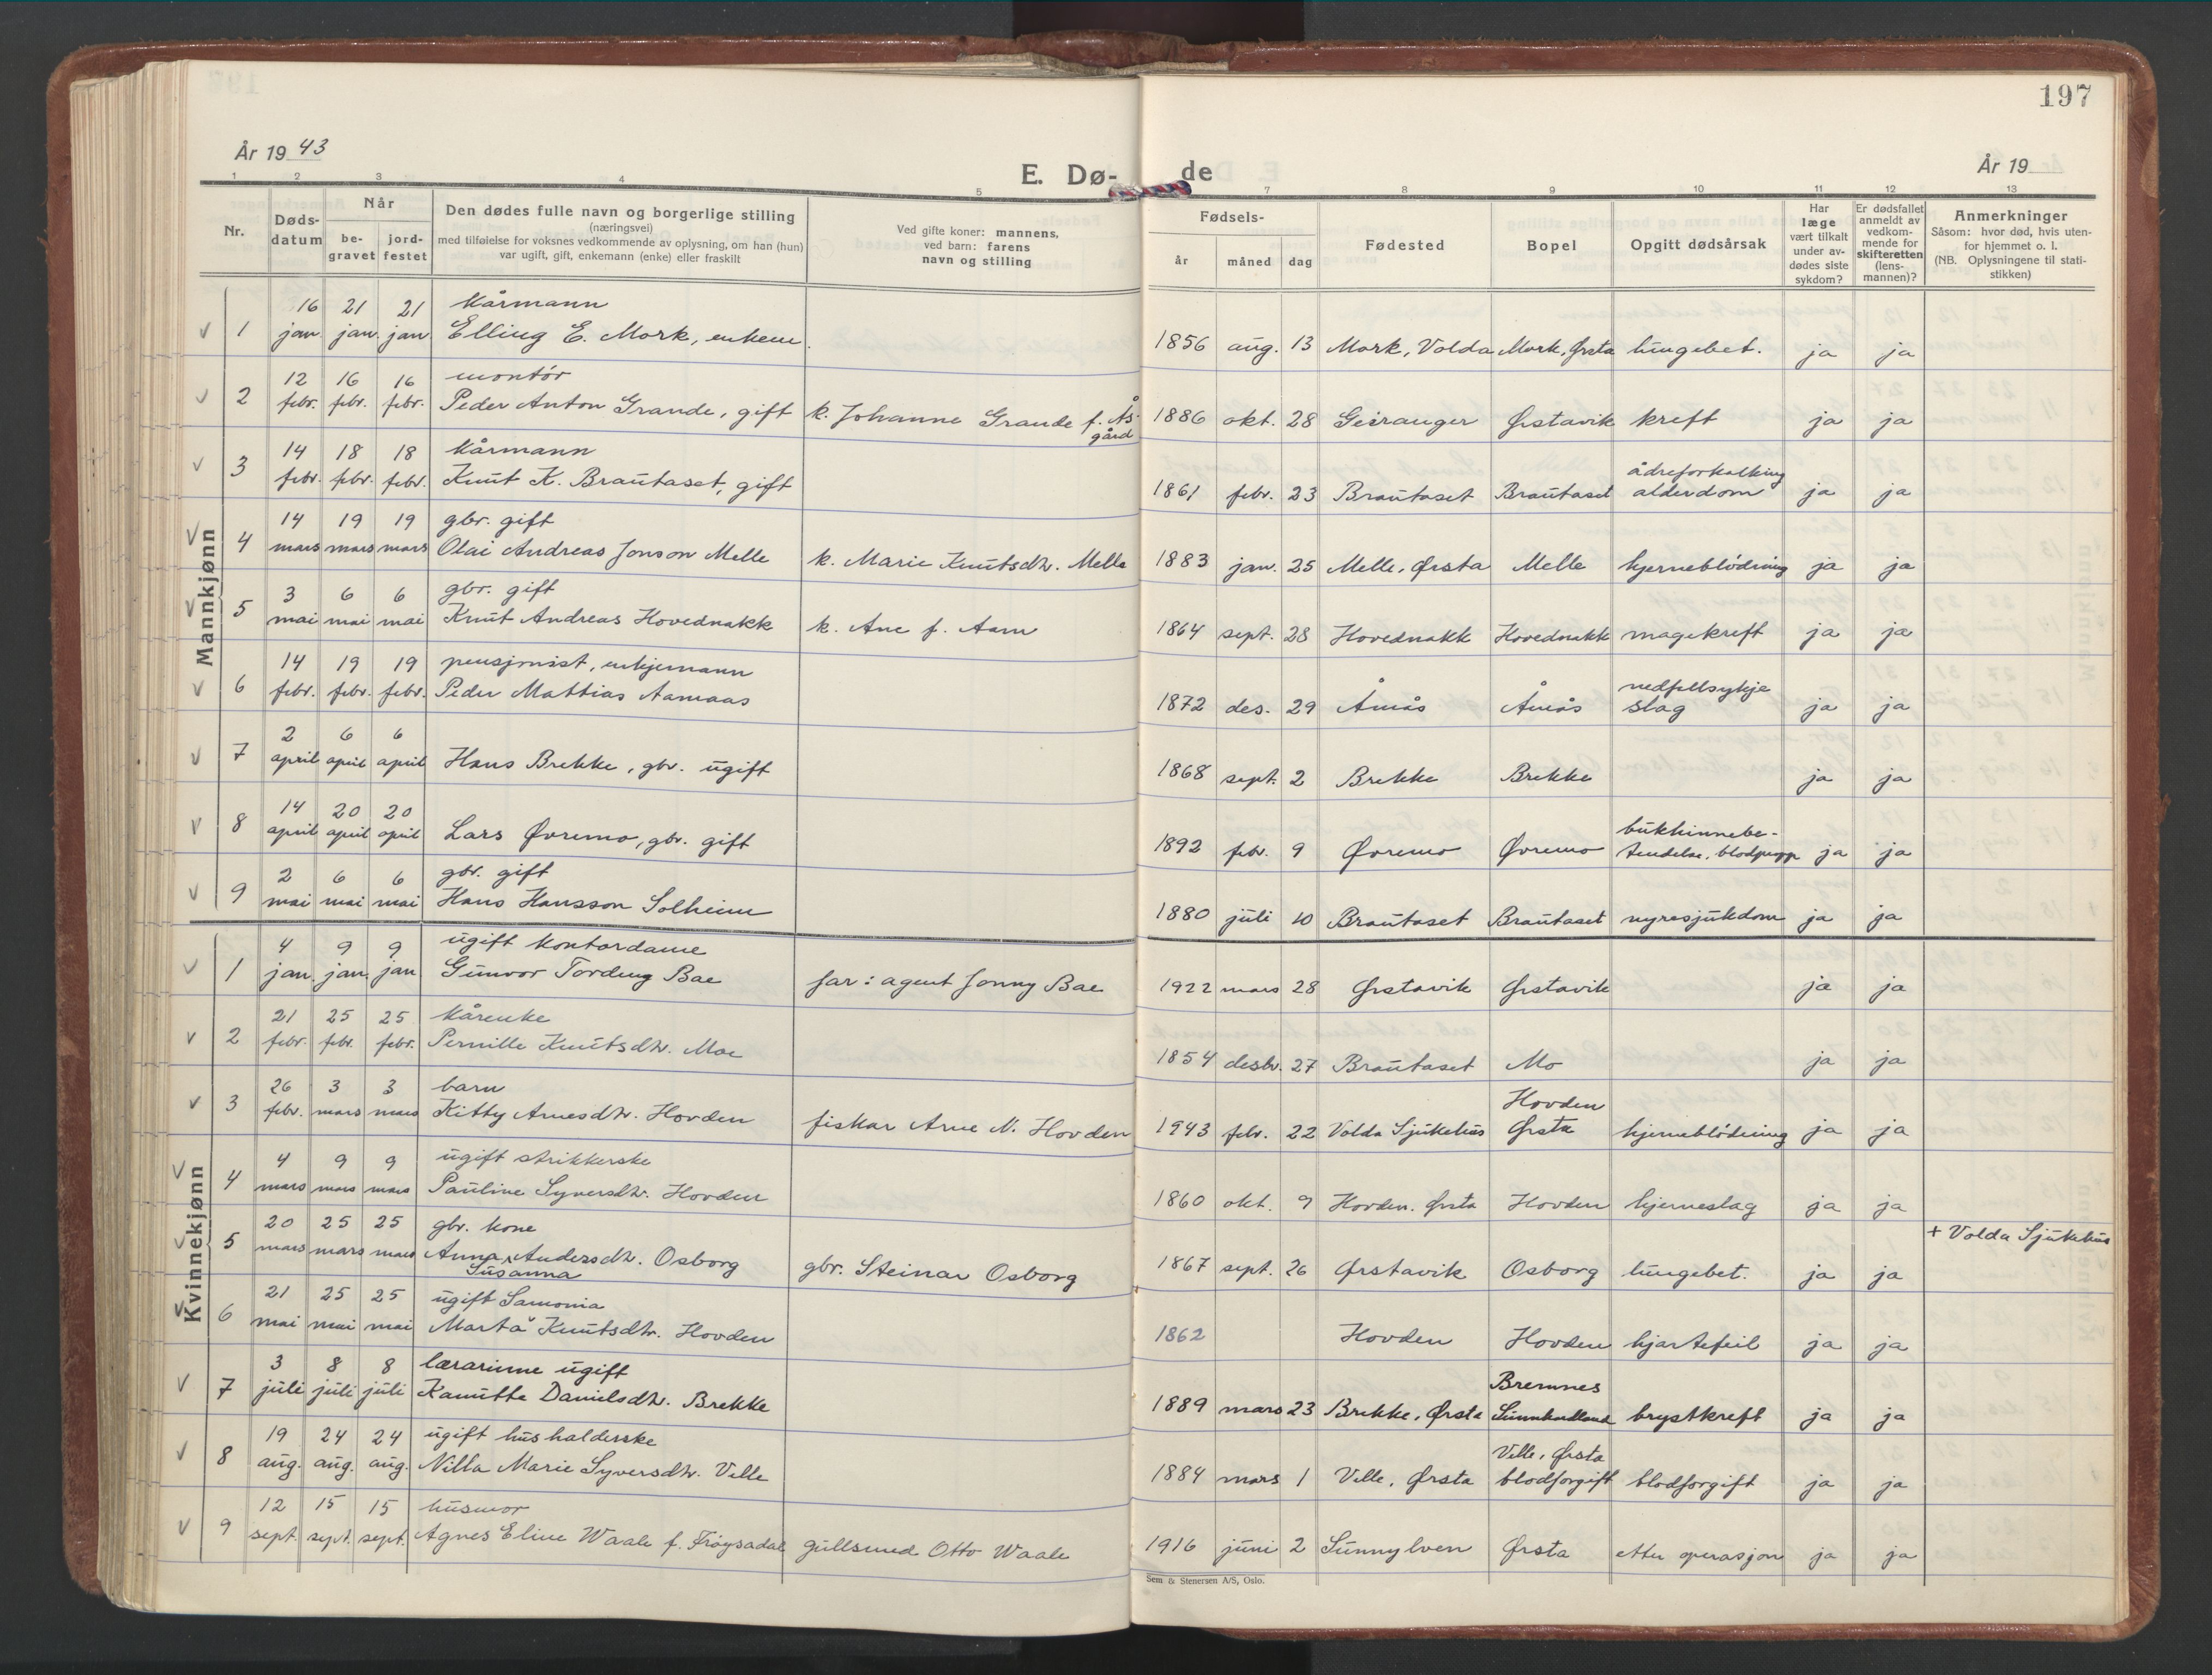 197
År 1943
E. Dø-
de
År 19
1 2 3 4 5 7 8 9 10 11 12 13
Nr.
Døds-
datum
Når
be-
gravet
jord-
festet
Den dødes fulle navn og borgerlige stilling
(næringsvei)
med tilføielse for voksnes vedkommende av oplysning, om han (hun)
var ugift, gift, enkemann (enke) eller fraskilt
Ved gifte koner: mannens,
ved barn: farens
navn og stilling
Fødsels-
år måned dag
Fødested
Bopel
Opgitt dødsårsak
Har
læge
vært tilkalt
under av-
dødes siste
sykdom?
Er dødsfallet
anmeldt av
vedkom-
mende for
skifteretten
(lens-
mannen)?
Anmerkninger
Såsom: hvor død, hvis uten-
for hjemmet o. l.
(NB. Oplysningene til stati-
stikken)
Mannkjønn
16 21 21 kårmann
1 jan. jan. jan Elling E. Mork, enkem. 1856 aug. 13 Mork, Volda Mork, Ørsta lungebet. ja ja
12 16 16 montør
2 febr. febr. febr. Peder Anton Grande, gift k. Johanne Grande f. Ås- 1886 okt. 28 Geiranger Ørstavik kreft ja ja
gård
14 18 18 kårmann ådreforkalking
3 febr. febr. febr. Knut K. Brautaset, gift 1861 febr. 23 Brautaset Brautaset alderdom ja ja
14 19 19 gbr. gift
4 mars mars mars Olai Andreas Jonson Melle k. Marie Knutsdtr. Melle 1883 jan. 25 Melle, Ørsta Melle hjerneblødning ja ja
3 6 6 gbr. gift
5 mai mai mai Knut Andreas Hovednakk k. Ane f. Aam 1864 sept. 28 Hovednakk Hovednakk magekreft ja ja
14 19 19 pensjonist, enkjemann nedfellsykje
6 febr. febr. febr. Peder Mattias Aamaas 1872 des. 29 Åmås Åmås slag ja ja
2 6 6
7 april april april Hans Brekke, gbr. ugift 1868 sept. 2 Brekke Brekke ja ja
14 20 20 bukhinnebe-
8 april april april Lars Øvremo, gbr. gift 1892 febr. 9 Øvremo Øvremo tendelse, blodpropp ja ja
2 6 6 gbr. gift
9 mai mai mai Hans Hansson Solheim 1880 juli 10 Brautaset Brautaset nyresjukdom ja ja
Kvinnekjønn
4 9 9 ugift kontordame
1 jan. jan. jan Gunvor Tordung Bae far: agent Jonny Bae 1922 mars 28 Ørstavik Ørstavik ja ja
21 25 25 kårenke
2 febr. febr. febr. Pernille Knutsdtr. Moe 1854 desbr. 27 Brautaset Mo ja ja
26 3 3 barn Hovden
3 febr. mars mars Kitty Arnesdtr. Hovden fiskar Arne N. Hovden 1943 febr. 22 Volda Sjukehus Ørsta hjerneblødning ja ja
4 9 9 ugift strikkerske
4 mars mars mars Pauline Syversdtr. Hovden 1860 okt. 9 Hovden. Ørsta Hovden hjerneslag ja ja
20 25 25 gbr. kone + Volda Sjukehus
5 mars mars mars Anna Andersdtr. Osborg gbr. Steinar Osborg 1867 sept. 26 Ørstavik Osborg lungebet. ja ja
Susanna
21 25 25 ugift Samonia
6 mai mai mai Marta Knutsdtr. Hovden 1862 Hovden Hovden hjartefeil ja ja
3 8 8 lærarinne ugift Bremnes
7 juli juli juli Kanutte Danielsdtr. Brekke 1889 mars 23 Brekke, Ørsta Sunnhordland brystkreft ja ja
19 24 24 ugift husholderske Velle, Ørsta
8 aug. aug. aug. Nilla Marie Syversdtr. Velle 1884 mars 1 Velle, Ørsta blodforgift blodforgift ja ja
12 15 15 husmor
9 sept. sept. sept. Agnes Eline Waale f. Frøysadal gullsmed Otto Waale 1916 juni 2 Sunnylven Ørsta etter operasjon ja ja
Sem & Stenersen A/S, Oslo.